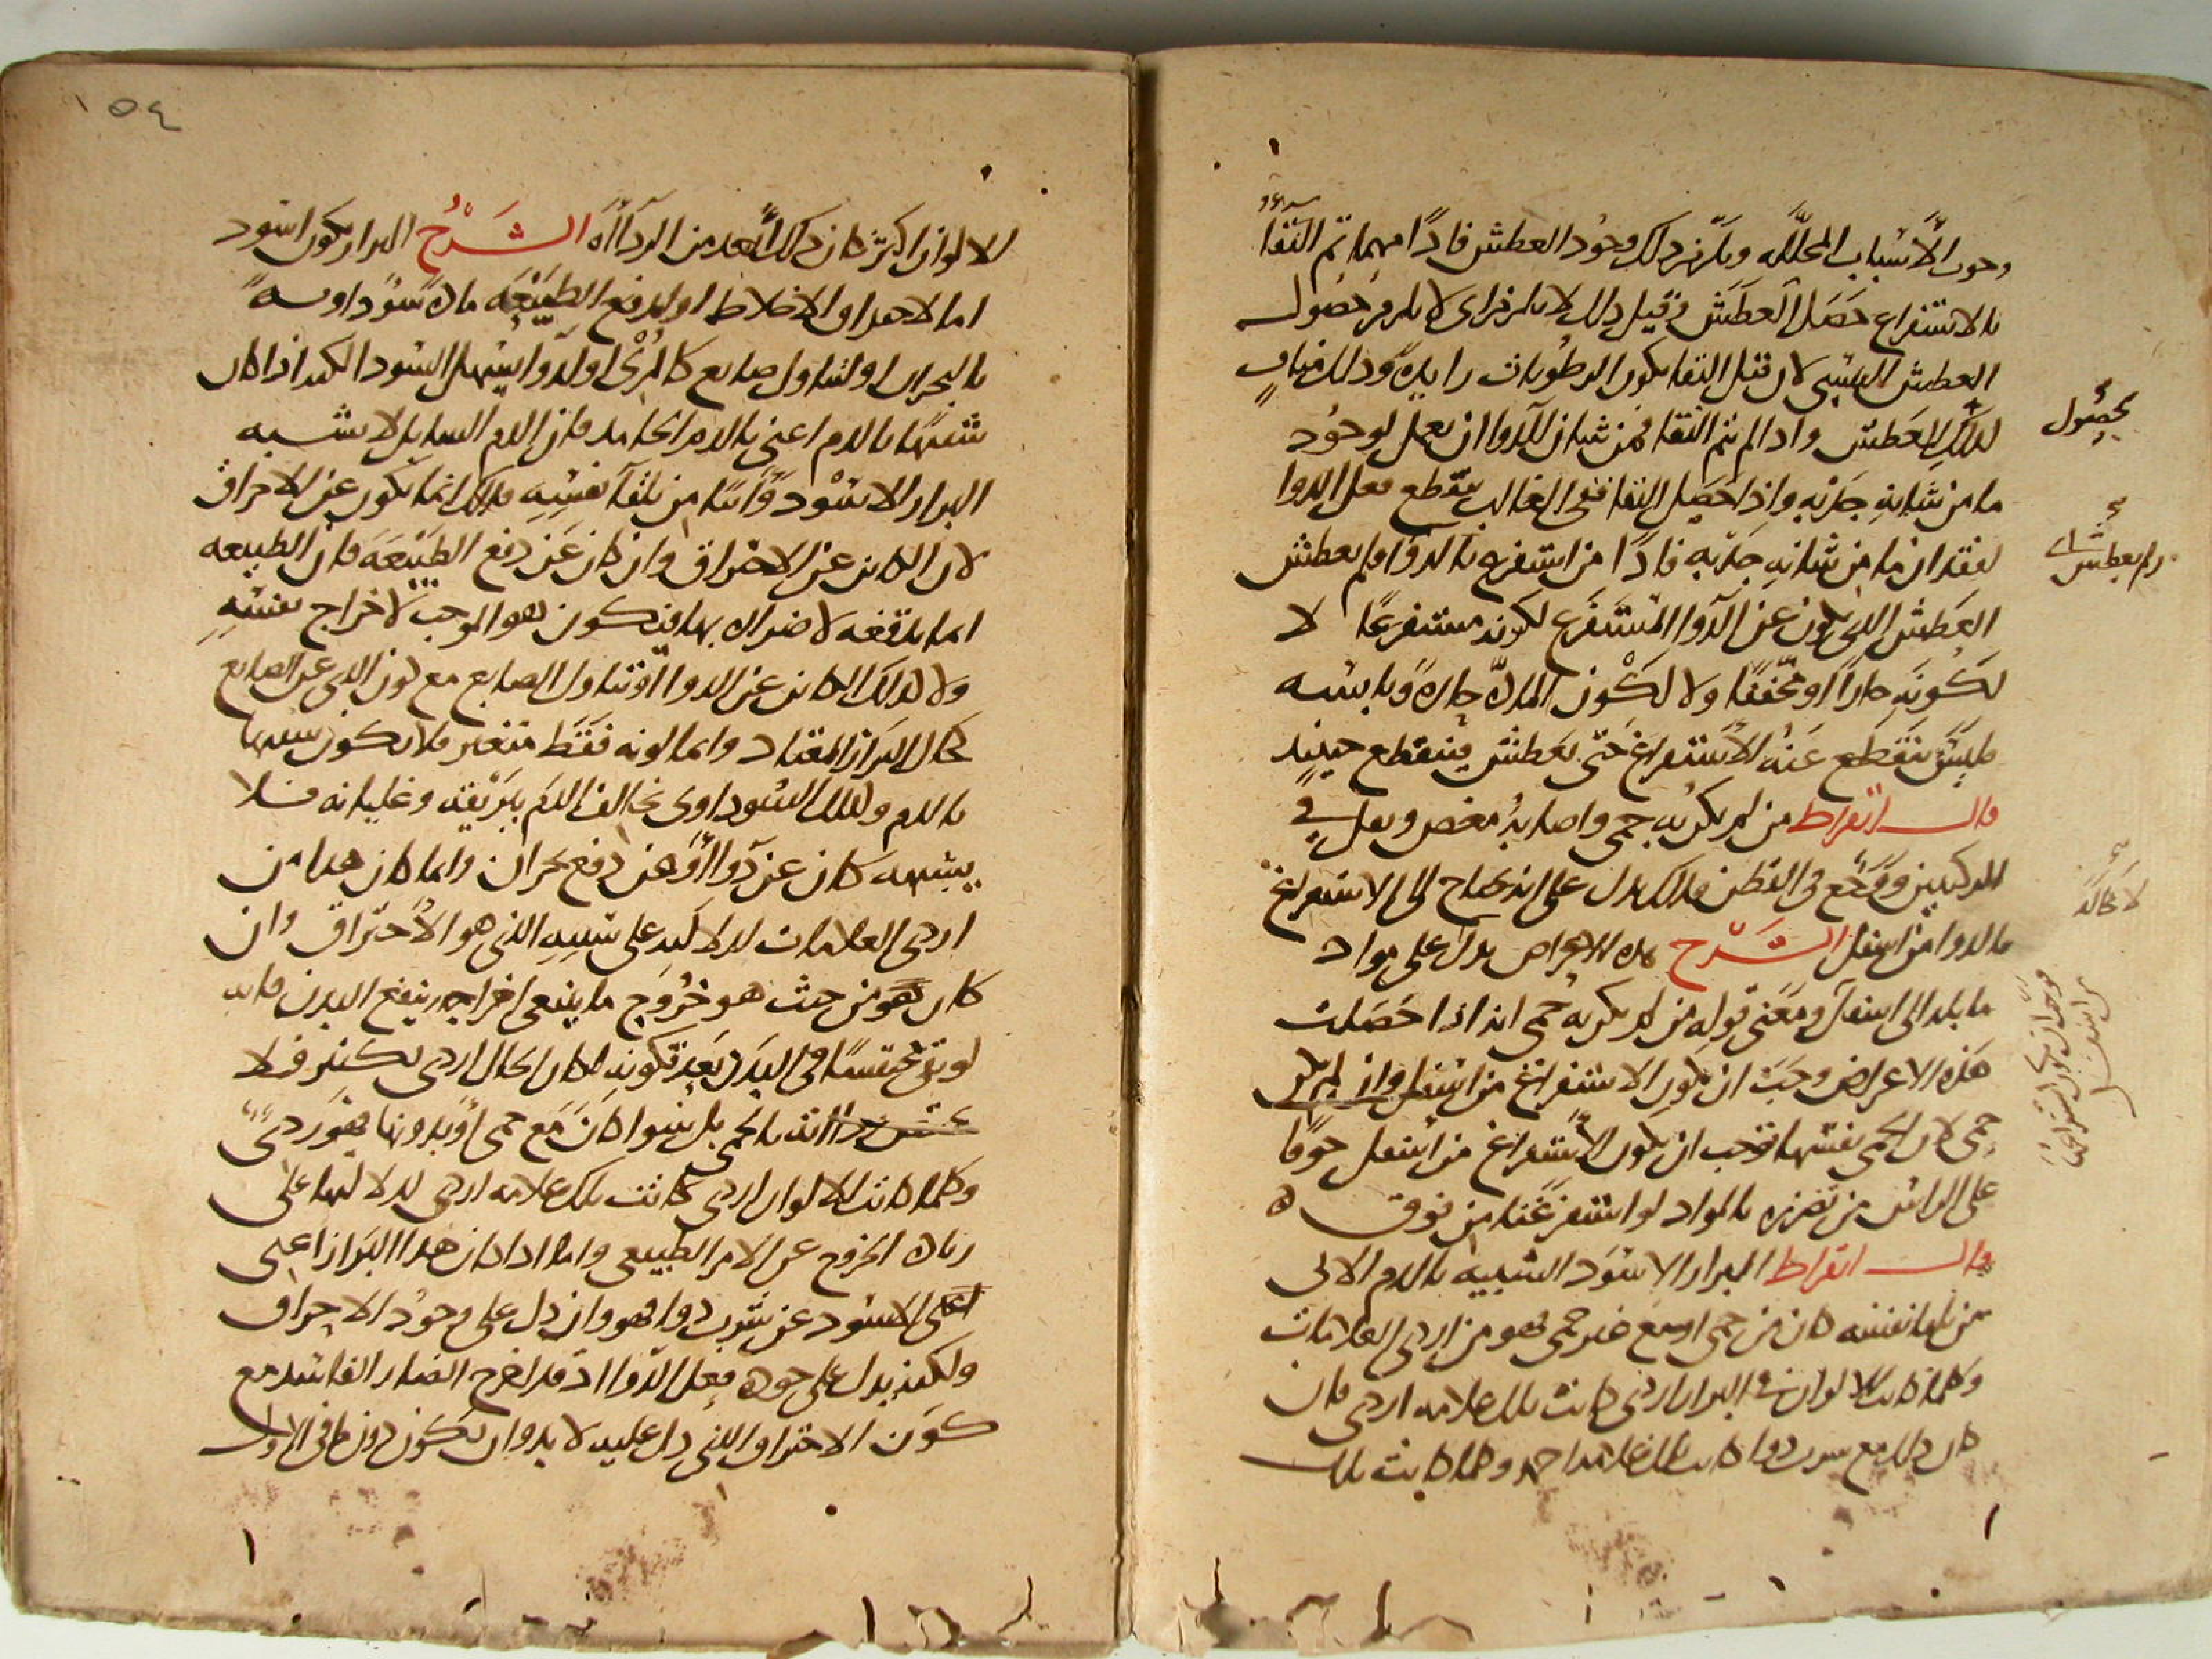 وجود الأسباب المحللة ويلزم ذلك وجود العطش فاذًا مهما تم النقا
بالاستفراغ حصل العطش وقبل ذلك لا يلزم اى لا يلزم حصول
العطش لان قبل النقا يكون الرطوبات زايدة وذلك مناف
للعطش واذا لم يتم النقا فمن شان الدوا ان يعمل لوجود
ما من شانه جذبه واذا حصل النقا ففى الغالب ينقطع فعل الدوا
لفقدان ما من شانه جذبه فاذًا من استفرغ بالدوا ولم يعطش
العطش الذى يكون عن الدوا المستفرغ لكونه مستفرغا لا
لكونه حارا او مجففا ولا لكون المادة حارة ويابسه
فليس ينقطع عنه الاستفراغ حتى يعطش فينقطع حينيذ
قال ابقراط من لم يكن به حمى واصابه مغص وثقل فى
الركبتين ووجع فى القطن فذلك يدل على انه يحتاج الى الاستفراغ
بالدوا من اسفل الشرح هذه الاعراض يدل على مواد
مايلة الى اسفل ومعنى قوله من لم يكن به حمى انه اذا حصلت
هذه الاعراض وجب ان يكون الاستفراغ من اسفل وان لم يكن
حمى لان الحمى نفسها توجب ان يكون الاستفراغ من اسفل خوفا
على الراس من تضرره بالمواد لو استفرغنا من فوق
قال ابقراط البراز الاسود الشبيه بالدم الاتى
من تلقا نفسه كان من حمى او مع غير حمى فهو من اردى العلامات
وكلما كانت الالوان فى البراز اردى كانت تلك علامه اردى فان
كان ذلك مع شرب دوا كانت تلك علامه احمد وكلما كانت تلك
بحصول
ولم يعطش
لا محالة
من اسفل
١٥٤
الالوان اكثر كان ذلك ابعد من الرداءة الشرح البراز يكون اسود
اما لاحتراق الاخلاط او لدفع الطبيعة مادة سوداويه
بالبحران او لتناول صابغ كالمرى او لدوا يسهل السودا لكنه اذا كان
شبيها بالدم اعنى بالدم الجامد فان الدم السايل لا يشبه
البراز الاسود واتيا من تلقا نفسه فذلك انما يكون عن الاحراق
لان الكاين عن الاحتراق وان كان عن دفع الطبيعة فان الطبيعه
انما تدفعه لاضراره بها فيكون هو الموجب لاخراج نفسه
ولا كذلك الكاين عن الدوا او تناول الصابغ مع كون الذى عن الصابغ
كحال البراز المعتاد وانما لونه فقط متغير فلا يكون شبيها
بالدم وكذلك السوداوى يخالف الدم ببريقه وغليانه فلا
يشبهه كان عن دوا او عن دفع بحران وانما كان هذا من
اردى العلامات لدلالته على سببه الذى هو الاحتراق وان
كان هو من حيث هو خروج ما ينبغى اخراجه ينفع البدن فانه
لو بقى محتبسا فى البدن بعد تكونه لكان الحال اردى بكثير فلا
بالحمى بل سوا كان مع حمى او بدونها فهو ردى
وكلما كانت الالوان اردى كانت تلك علامه اردى لدلالتها على
زيادة الخروج عن الامر الطبيعى واما اذا كان هذا البراز اعنى
الاسود عن شرب دوا فهو وان دل على وجود الاحراق
ولكنه يدل على جودة فعل الدوا اذ قد اخرج الضار الفاسد مع
كون الاحتراق الذى دل عليه لا بد وان يكون دون ما فى الاول